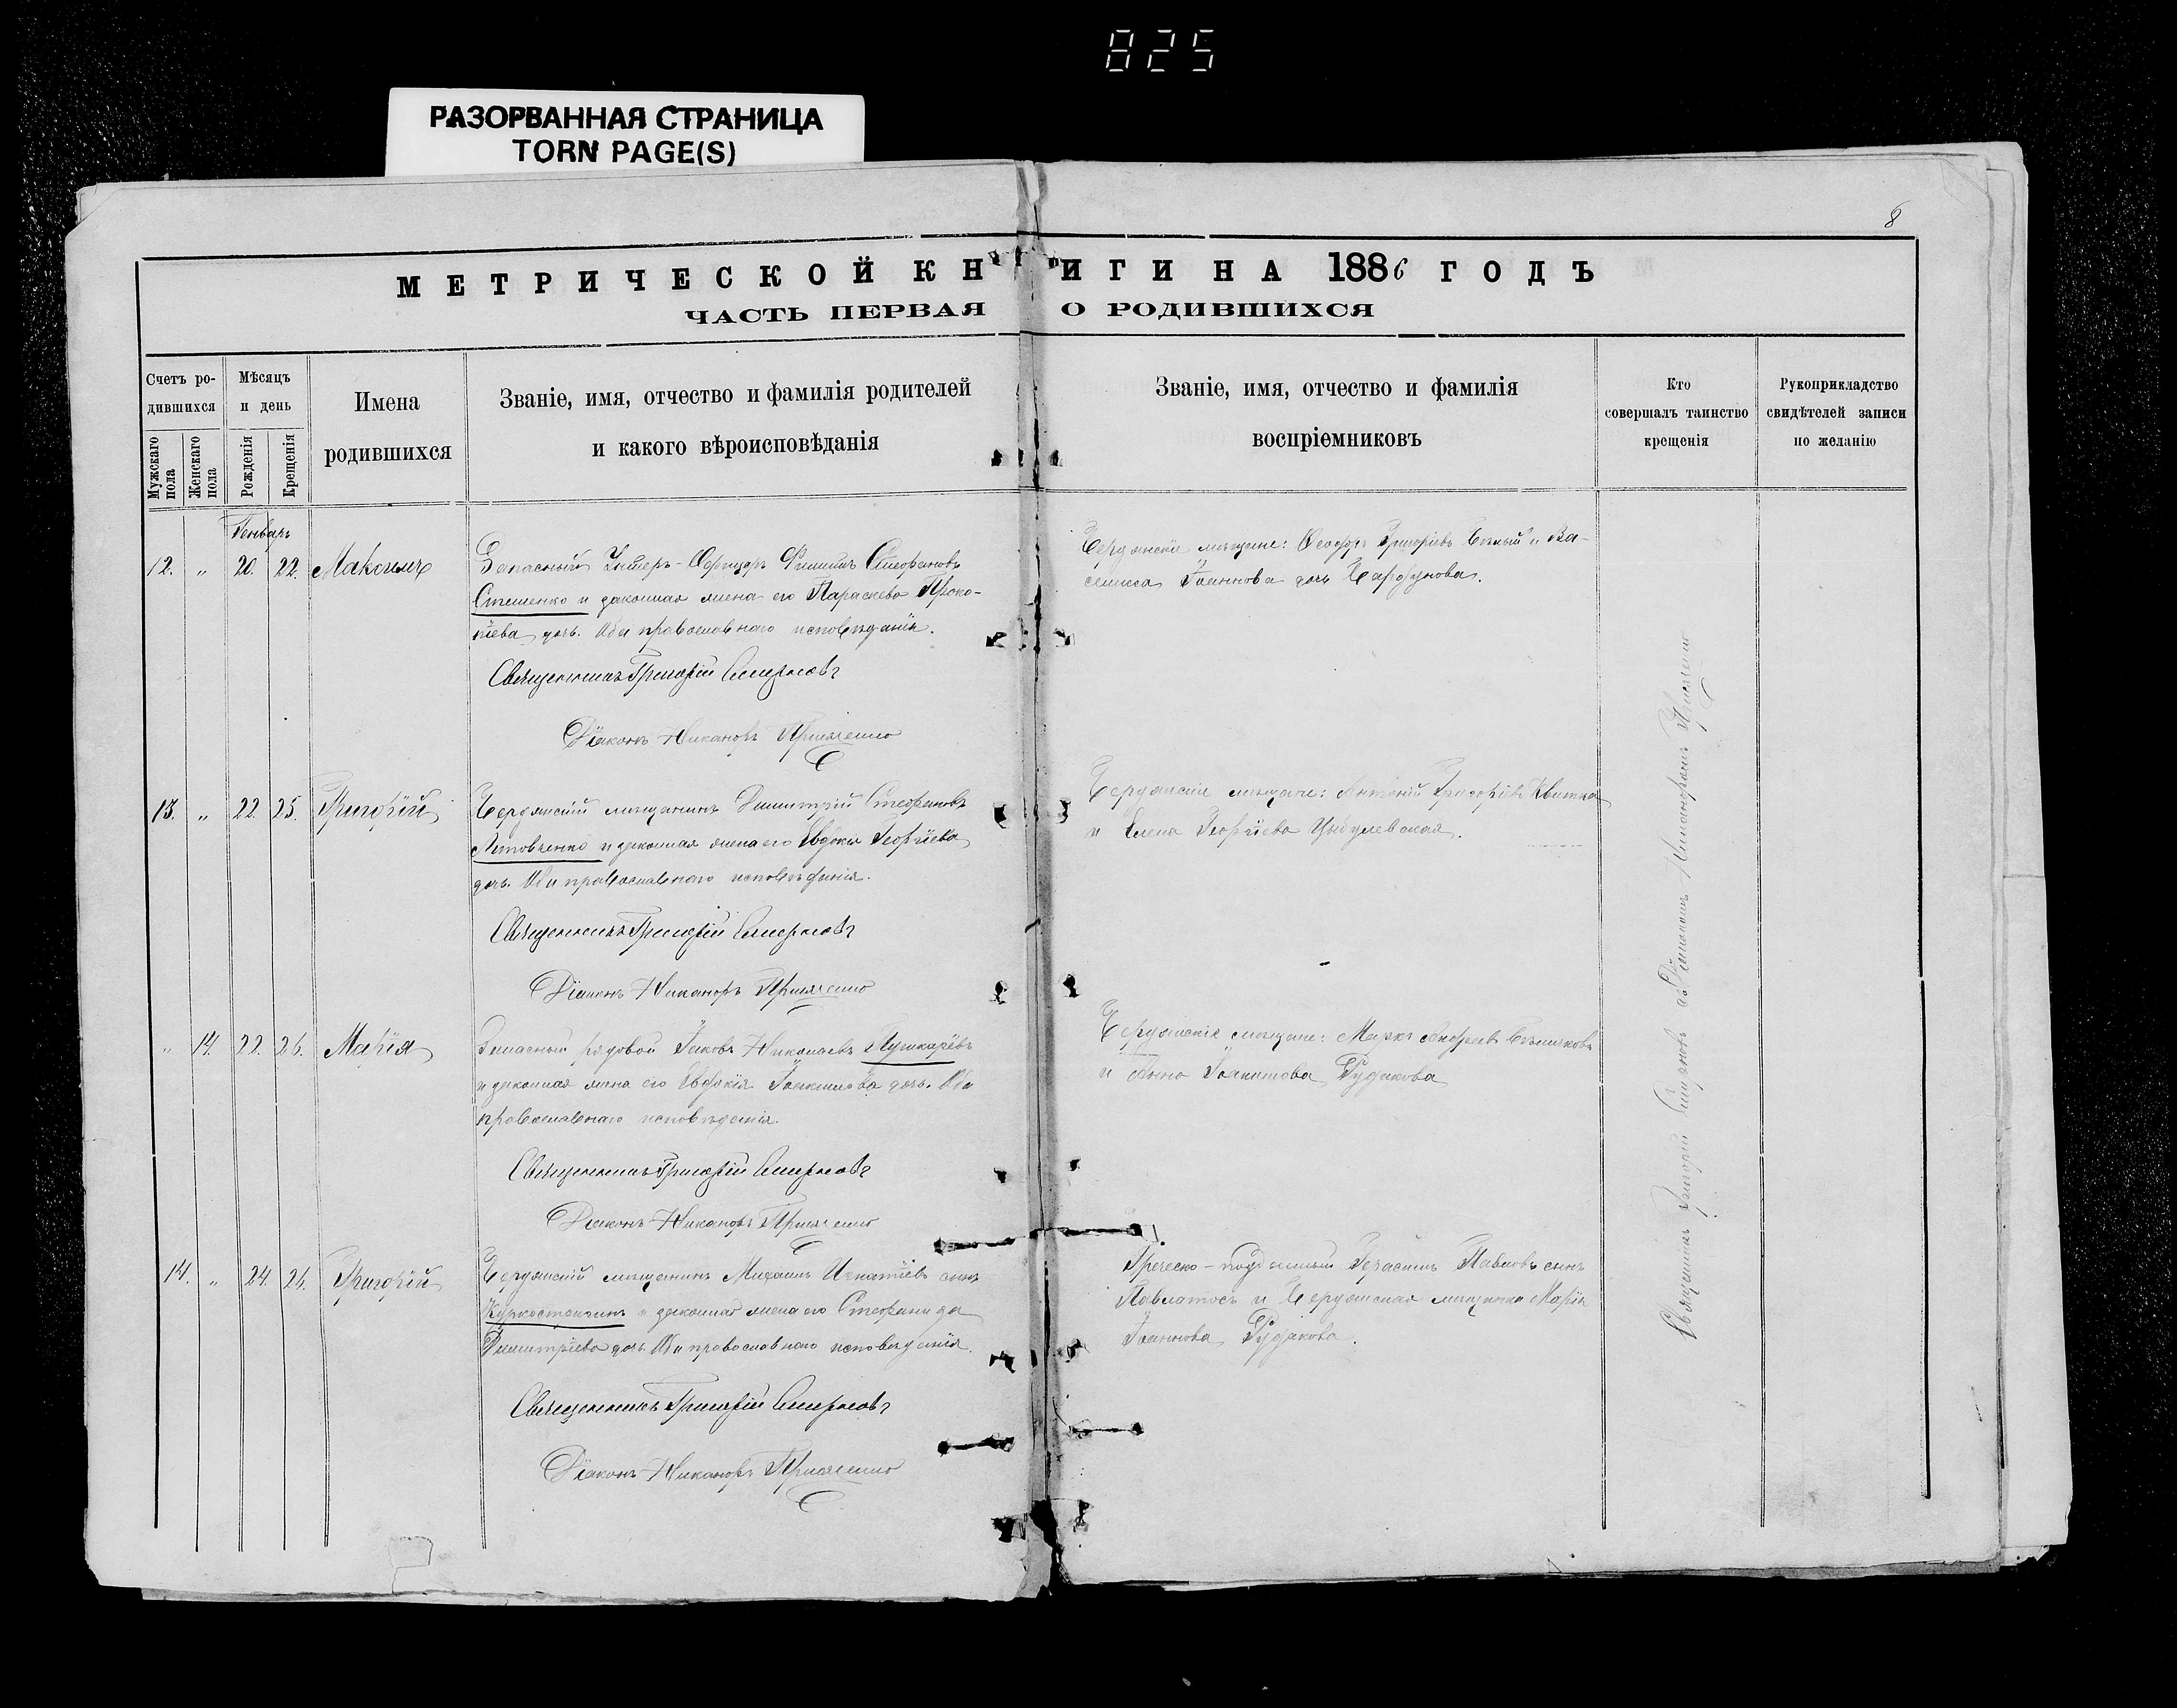 825
РАЗОРВАННАЯ СТРАНИЦА
TORN PAGE(S)
8
МЕТРИЧЕСКОЙ КНИГИ НА 1886 ГОДЪ
ЧАСТЬ ПЕРВАЯ О РОДИВШИХСЯ
Счетъ ро-
дившихся
Мужскаго пола
Женскаго пола
Мѣсяцъ
и день
Рожденія
Крещенія
Имена
родившихся
Званіе, имя, отчество и фамилія родителей
и какого вѣроисповѣданія
Званіе, имя, отчество и фамилія
воспріемниковъ
Кто
совершалъ таинство
крещенія
Рукоприкладство
свидѣтелей записи
по желанію
Генварь
12. " 20. 22. Максимъ
Запасный Унтеръ-Офицеръ Филиппъ Стефановъ
Стешенко и законная жена его Параскева Проко-
піева дочь. Оба православнаго исповѣданія.
Священникъ Григорій Смирновъ
Діаконъ Никаноръ
Бердянскіе мѣщане: Григоріевъ и Ва-
силиса Іоаннова дочь
13. " 22. 25. Григорій
Бердянскій мѣщанинъ Димитрій Стефановъ
Литовченко и законная жена его Евдокія Георгіева
дочь. Оба православнаго исповѣданія.
Священникъ Григорій Смирновъ
Діаконъ Никаноръ
Бердянскіе мѣщане: Антоній Григоріевъ Квитка
и Елена Георгіева Цыбулевская.
" 14. 22. 26. Марія
Запасный рядовой Іаковъ Николаевъ Пушкарёвъ
и законная жена его Евфокія дочь. Оба
православнаго исповѣданія.
Священникъ Григорій Смирновъ
Діаконъ Никаноръ
Бердянскіе мѣщане: Маркъ Андреевъ
и Анна Рудакова
14. " 24. 26. Григорій
Бердянскій мѣщанинъ Михаилъ Игнатіевъ сынъ
и законная жена его Стефанида
Димитріева дочь. Оба православнаго исповѣданія.
Священникъ Григорій Смирновъ
Діаконъ Никаноръ
Греческо-подданный Герасимъ Павловъ сынъ
Павлатосъ и Бердянская мѣщанка Марія
Іоаннова Рудакова.
Священникъ Григорій Смирновъ съ Діакономъ Никаноромъ